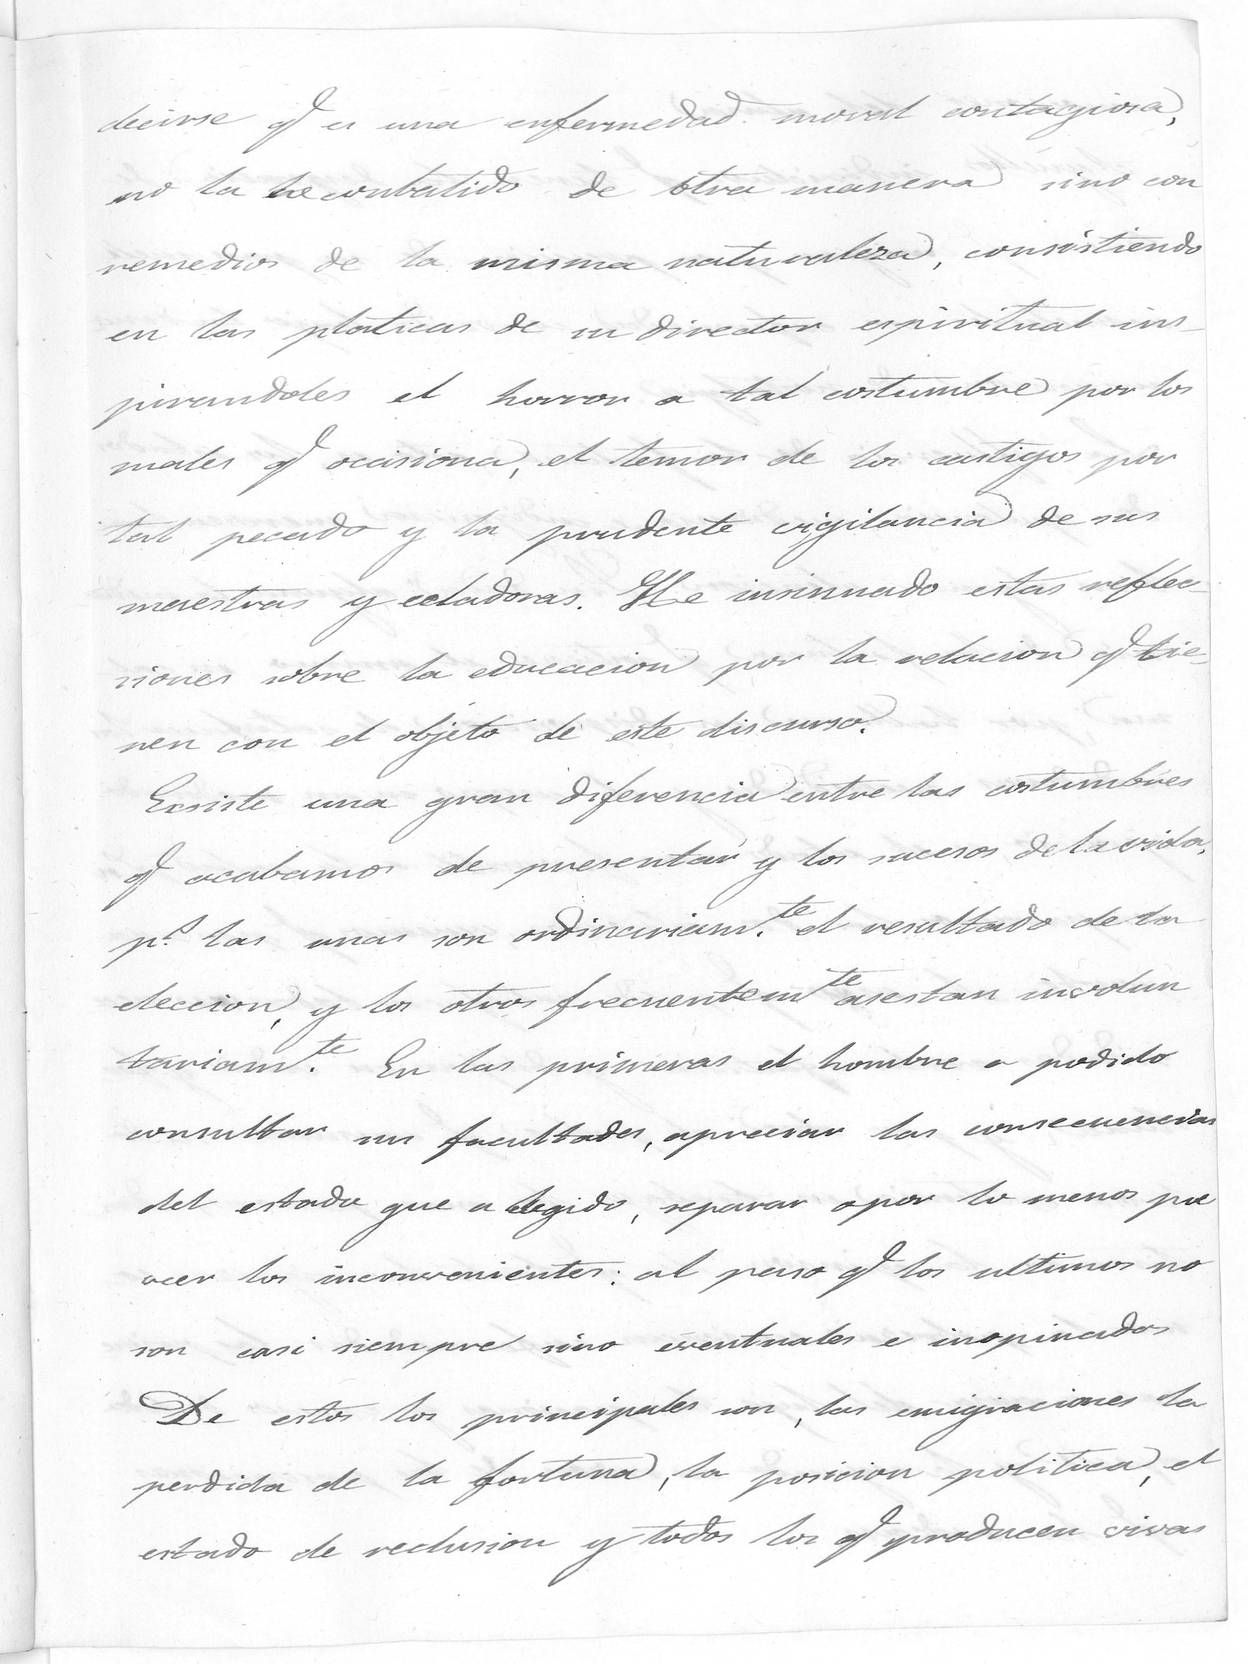 decirse q̃ es una enfermedad moral contagiosa,
no la he conbatido de otra manera sino con
remedios de la misma naturaleza, consistiendo
en las platicas de su director espiritual ins-
pirandoles el horror a tal costumbre por los
males q̃ ocasiona, el temor de los castigos por
tal pecado y la prudente vigilancia de sus
maestras y celadoras. He insinuado estas reflec-
siones sobre la educacion por la relacion q̃ tie-
nen con el objeto de este discurso.
Ecsiste una gran diferencia entre las costumbres
q̃ acabamos de presentar y los sucesos de la vida,
p.s las unas son ordinariam.te el resultado de la
eleccion, y los otros frecuentem.te asestan involun
tariam.te En las primeras el hombre a podido
consultar sus facultades, apreciar las consecuencias
del estado que a elegido, reparar o por lo menos pre
veer los inconvenientes: al paso q̃ los ultimos no
son casi siempre sino eventuales e inopinados
De estos los principales son, las emigraciones la
perdida de la fortuna, la posicion politica, el
estado de reclusion y todos los q̃ producen vivas